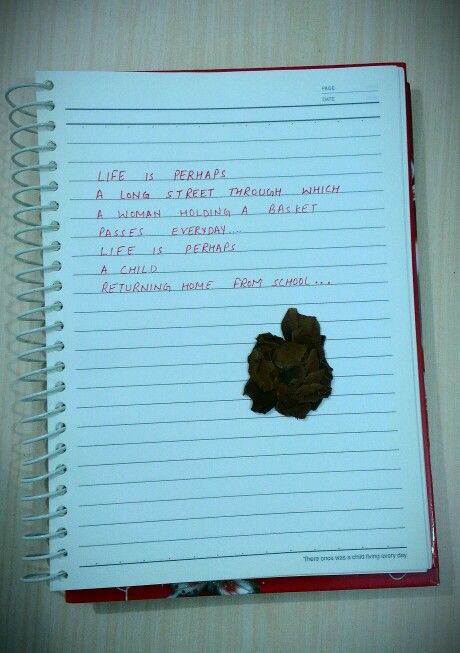 PAGE
DATE
LIFE IS PERHAPS
A LONG STREET THROUGH WHICH
A WOMAN HOLDING A BASKET
PASSES EVERYDAY....
LIFE IS PERHAPS
A CHILD
RETURNING HOME FROM SCHOOL...
"There once was a child living every day